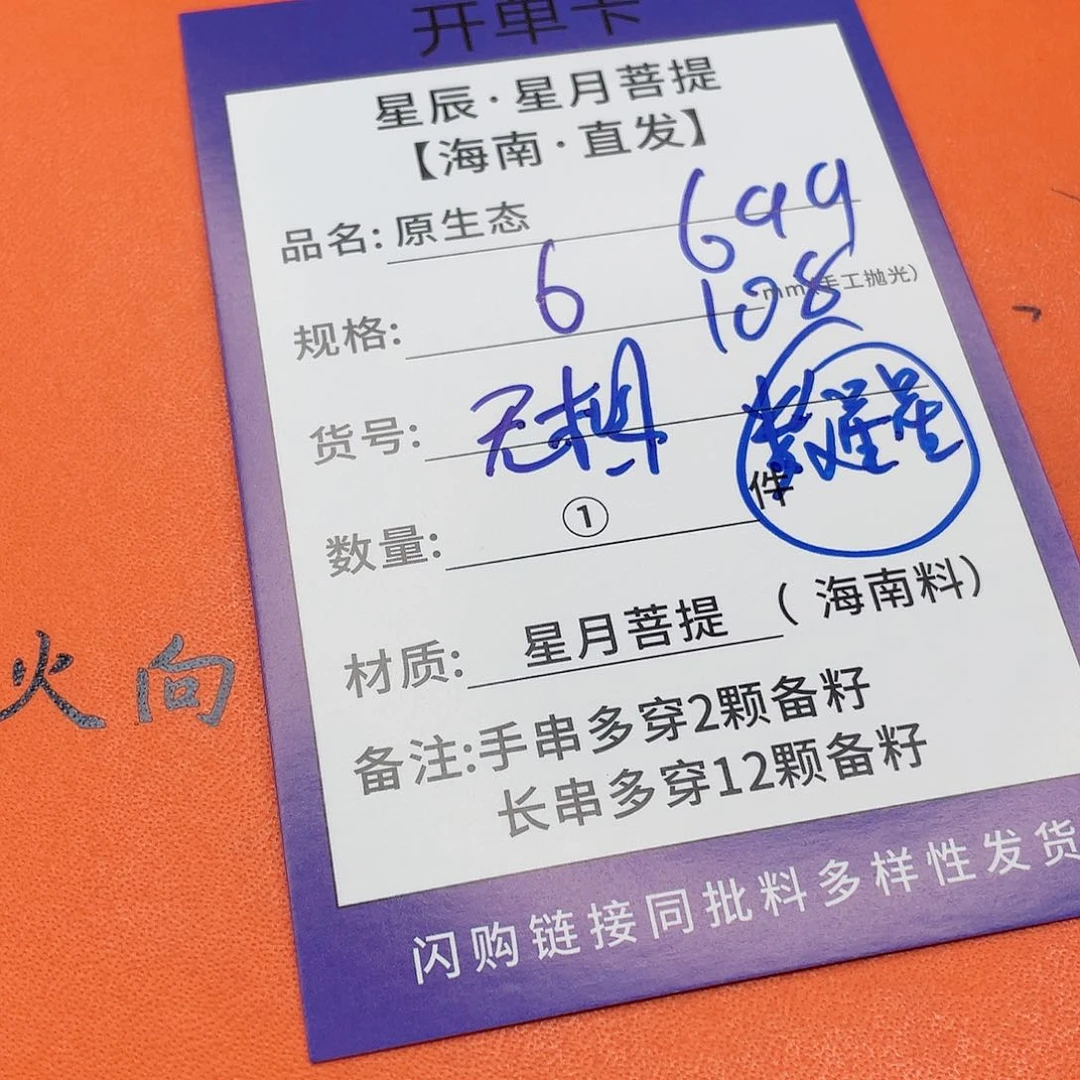 开单卡
星辰·星月菩提
【海南·直发】
品名:原生态 699
规格: 6 108 mm(手工抛光)
货号: 无相
数量: ① 件
材质: 星月菩提 (海南料)
备注:手串多穿2颗备籽
长串多穿12颗备籽
闪购链接同批料多样性发货
火向